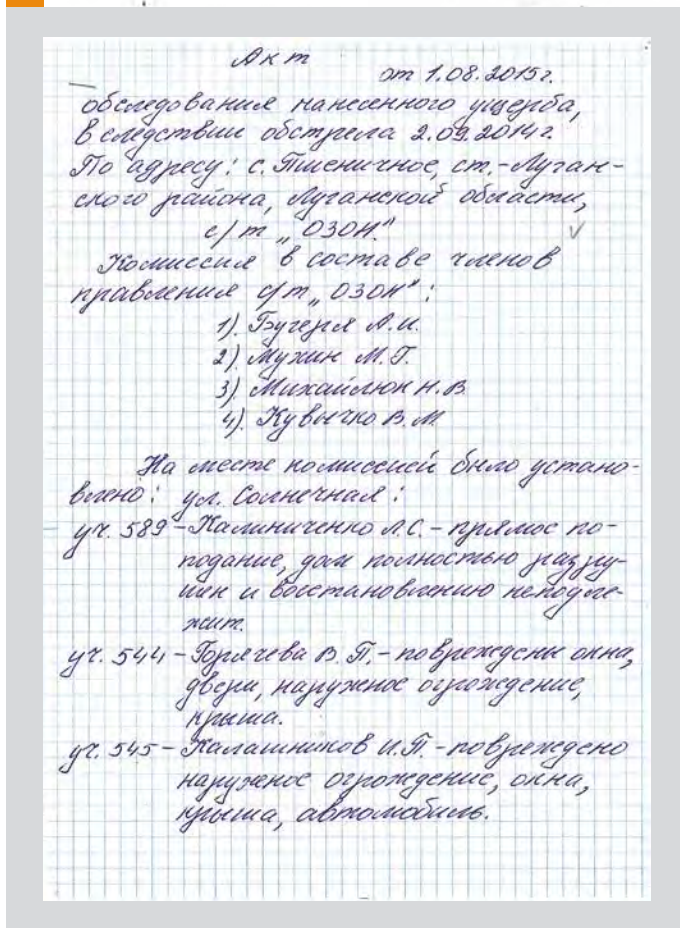 Акт
от 1.08.2015г.
обследования нанесенного ущерба,
в следствии обстрела 2.09.2014г.
По адресу: с. Пшеничное, ст.-Луган-
ского района, Луганской области,
с/т „ОЗОН"
Комиссия в составе членов
правления с/т „ОЗОН":
1). Бучеря А.И.
2) Мухин М.Г.
3) Михайлюк Н.В.
4). Кувычко В.М.
На месте комиссией было устано-
влено: ул. Солнечная:
уч. 589 - Калиниченко Л.С. - прямое по-
подание, дом полностью разру-
шен и восстановлению неподле-
жит.
уч. 544 - Горячева В.П. - повреждены окна,
двери, наружное огрождение,
крыша.
уч. 545 - Калашников И.П. - повреждено
наружное огрождение, окна,
крыша, автомобиль.